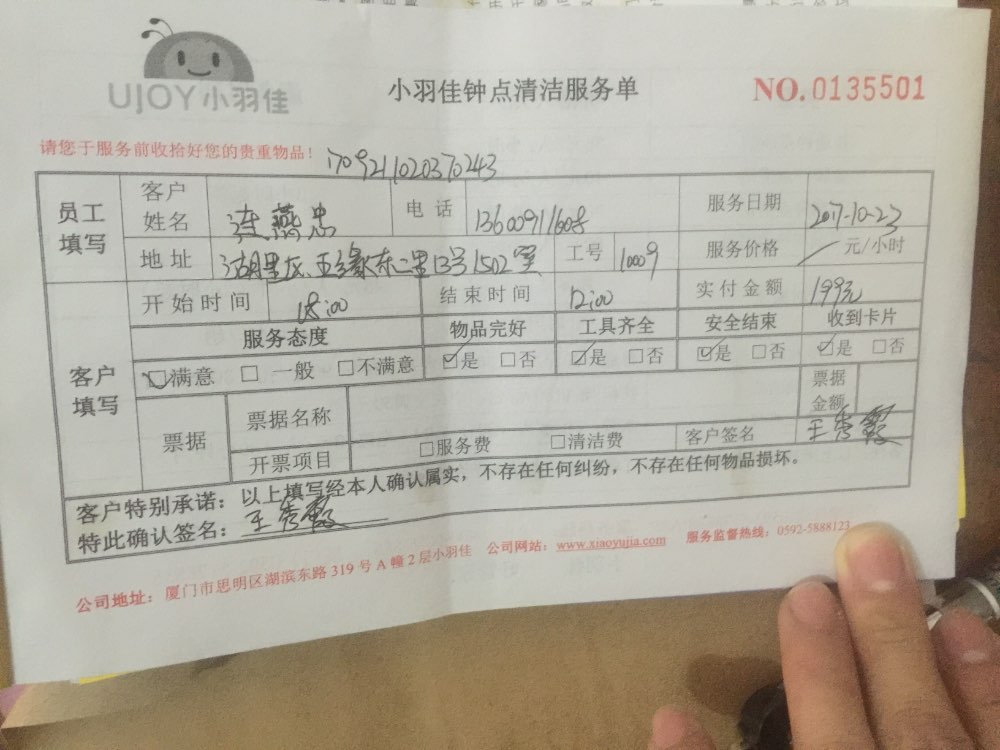 UJOY小羽佳
小羽佳钟点清洁服务单
NO.0135501
请您于服务前收拾好您的贵重物品！
170921102037243
员工填写
客户姓名 连燕忠 电话 13600911608 服务日期 2017-10-23
地址 湖里区 东二里13号1502室 工号 11009 服务价格 元/小时
客户填写
开始时间 18:00 结束时间 12:00 实付金额 199元
服务态度 物品完好 工具齐全 安全结束 收到卡片
☑满意 □ 一般 □不满意 ☑是 □否 ☑是 □否 ☑是 □否 ☑是 □否
票据 票据名称 票据金额
开票项目 □服务费 □清洁费 客户签名 王秀霞
客户特别承诺：以上填写经本人确认属实，不存在任何纠纷，不存在任何物品损坏。
特此确认签名：王秀霞
公司地址：厦门市思明区湖滨东路 319 号 A 幢 2 层小羽佳 公司网站：www.xiaoyujia.com 服务监督热线：0592-5888123